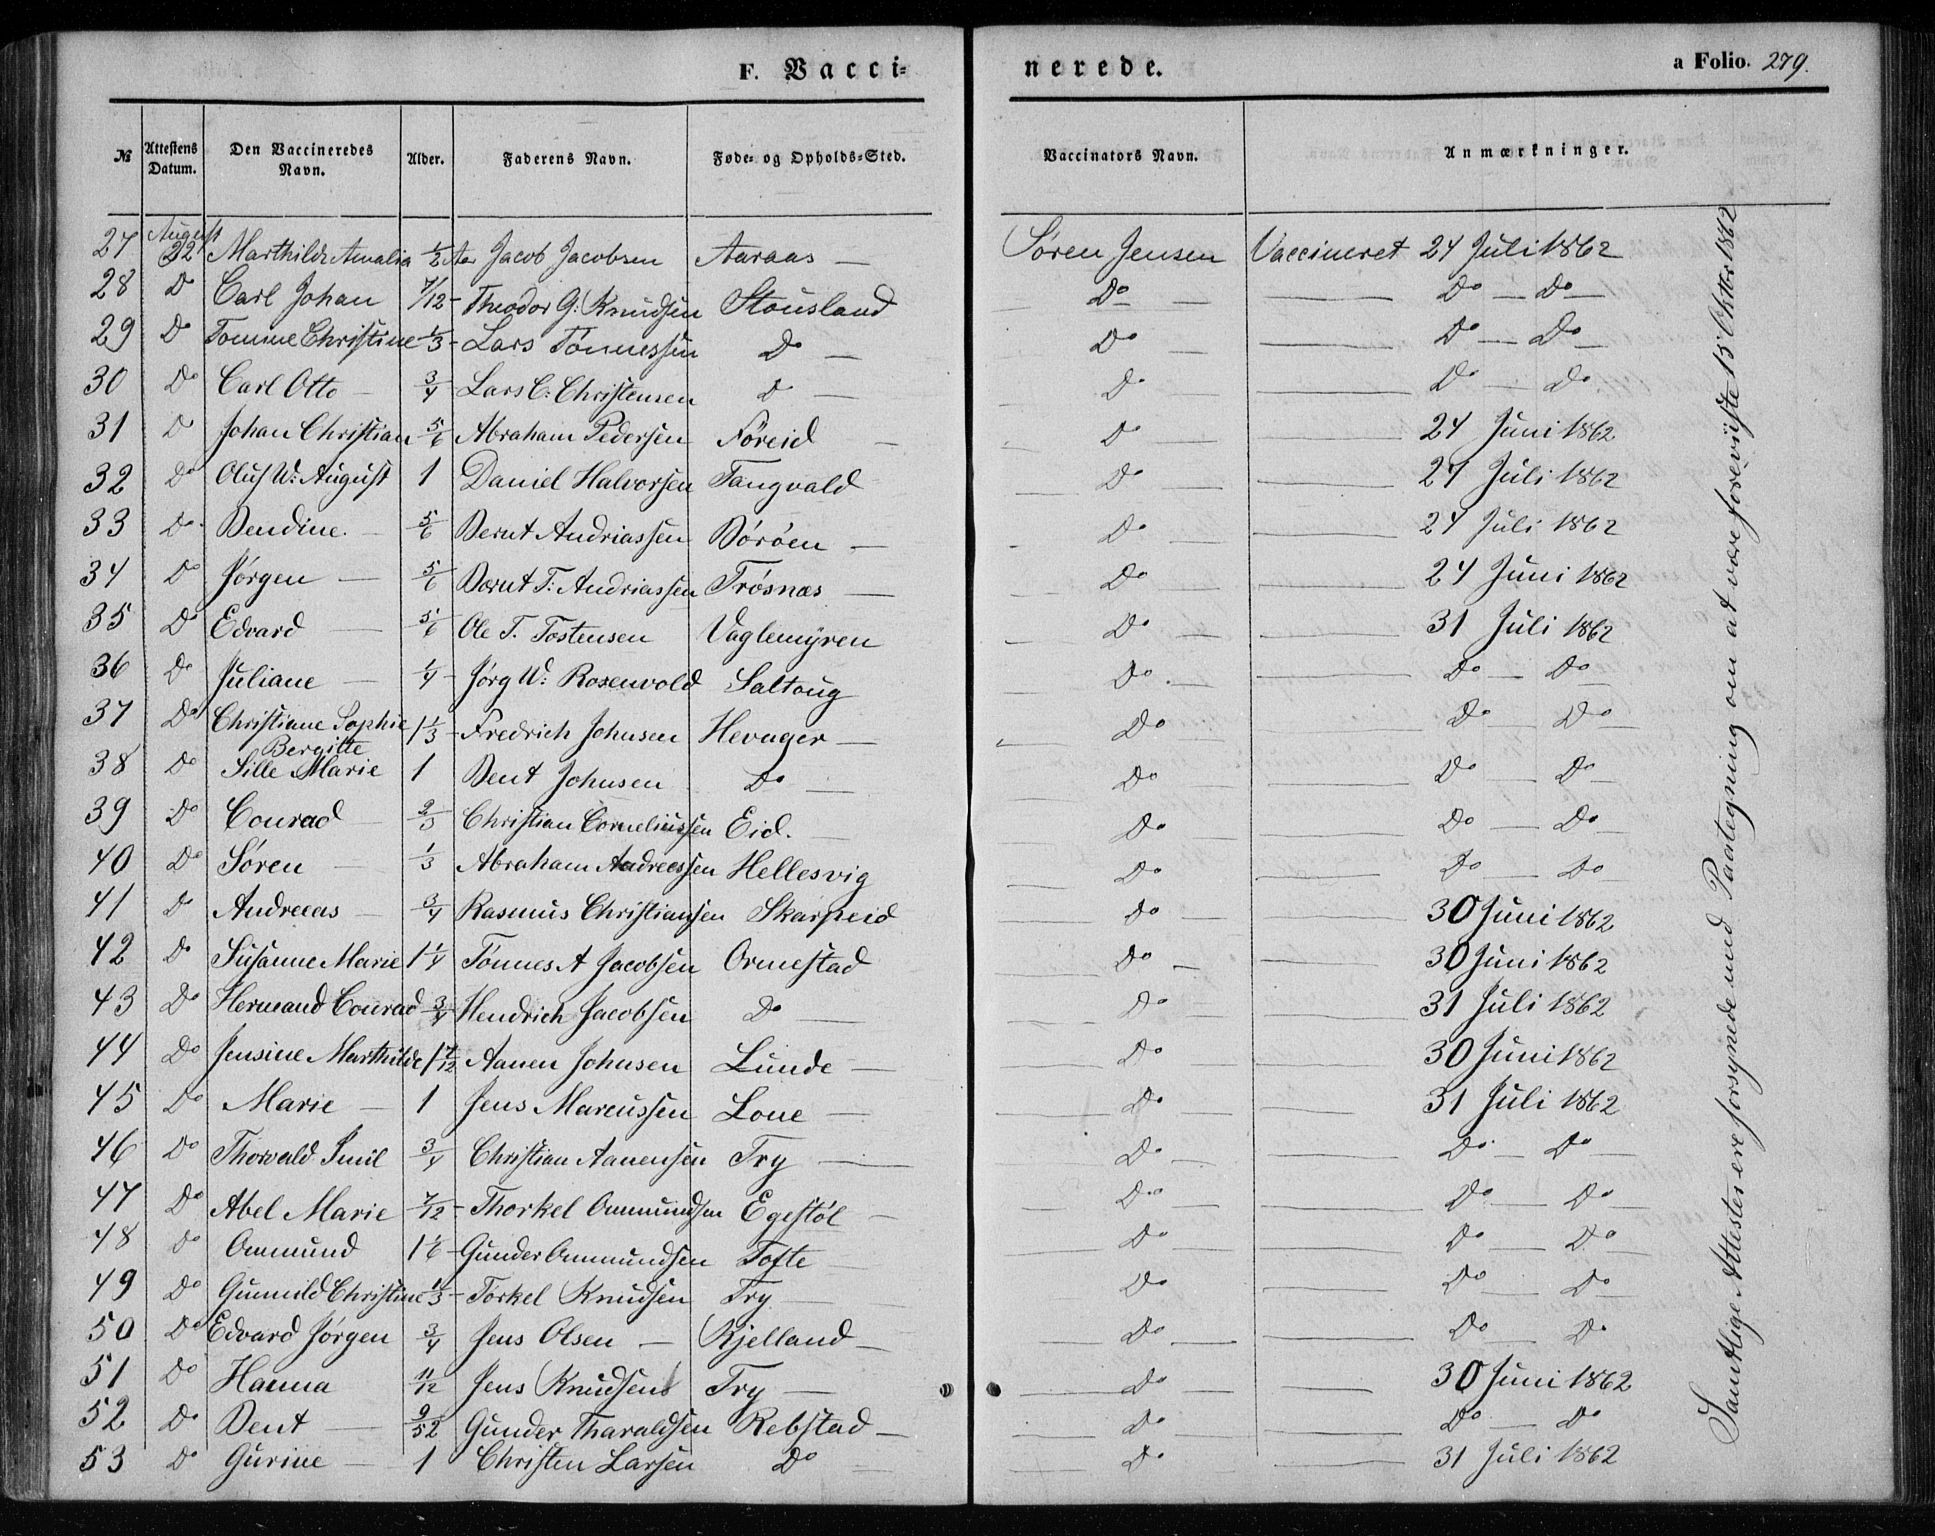 F. Vacci=
nerede.
a Folio. 279.
№ Attestens Datum. Den Vaccineredes Navn. Alder. Faderens Navn. Føde= og Opholds=Sted. Vaccinators Navn. Anmærkninger.
27 August 22 Marthilde Amalia 1/2 Aar Jacob Jacobsen Aaraas — Søren Jensen Vaccineret 24 Juli 1862
28 Do Carl Johan 7/12 - Theodor G: Knudsen Stousland Do — Do — Do —
29 Do Tomine Christine 1/3 - Lars Tønnessen Do — Do — Do — Do
30 Do Carl Otto — 3/4 Lars C. Christensen Do — Do — Do — Do
31 Do Johan Christian 5/6 Abraham Pedersen Føreid — Do — 24 Juni 1862
32 Do Oluf W: August 1 Daniel Halvorsen Tangvald Do — 27 Juli 1862
33 Do Bendine. — 5/6 Bernt Andriassen Børøen — Do — 24 Juli 1862
34 Do Jørgen — 5/6 Bernt T: Andriassen Trøsnæs — Do — 24 Juni 1862
35 Do Edvard — 5/6 Ole T. Tostensen Vaglemyren Do — 31 Juli 1862
36 Do Juliane — 1/4 - Jørg W: Rosenvold Saltoug Do — Do — Do —
37 Do Christiane Sophie 1 1/3 - Fredrich Johnsen Hevager — Do Do — Do —
Bergitte
38 Do Sille Marie 1 Bent Johnsen Do — Do Do — Do —
39 Do Conrad — 2/3 Christian Corneliussen Eid. — Do — Do — Do —
40 Do Søren — 1/3 Abraham Andreessen Hellesvig Do — Do — Do —
41 Do Andreas — 3/4 Rasmus Christiansen Skarpeid Do — 30 Juni 1862
42 Do Susanne Marie 1 1/4 Tønnes A Jacobsen Ormestad Do — 30 Juni 1862
43 Do Hermand Conrad 3/4 Hendrich Jacobsen Do — Do — 31 Juli 1862
44 Do Jensine Marthilde 1 7/12 Aanen Johnsen Lunde — Do — 30 Juni 1862
45 Do Marie — 1 Jens Marcussen Lone — Do — 31 Juli 1862
46 Do Thorvald Emil 3/4 Christian Aanensen Try — Do — Do — Do —
47 Do Abel Marie 7/12 - Thorkel Ommundsen Egestøl — Do — Do — Do
48 Do Ommund 1 1/6 - Gunder Ommundsen Tofte — Do — Do — Do —
49 Do Gunnild Christine 1/3 - Torkel Knudsen Try — Do — Do — Do —
50 Do Edvard Jørgen 3/4 Jens Olsen — Kjelland — Do — Do — Do
51 Do Hanna 11/12 Jens Knudsens Try — Do — 30 Juni 1862
52 Do Bent — 9/52 Gunder Tharaldsen Rebstad — Do — Do — Do
53 Do Gurine — 1 Christen Larsen Do — Do — 31 Juli 1862
Samtlige Attester ere forsynede med Paategning om at være foreviiste 15 Oktbr 1862